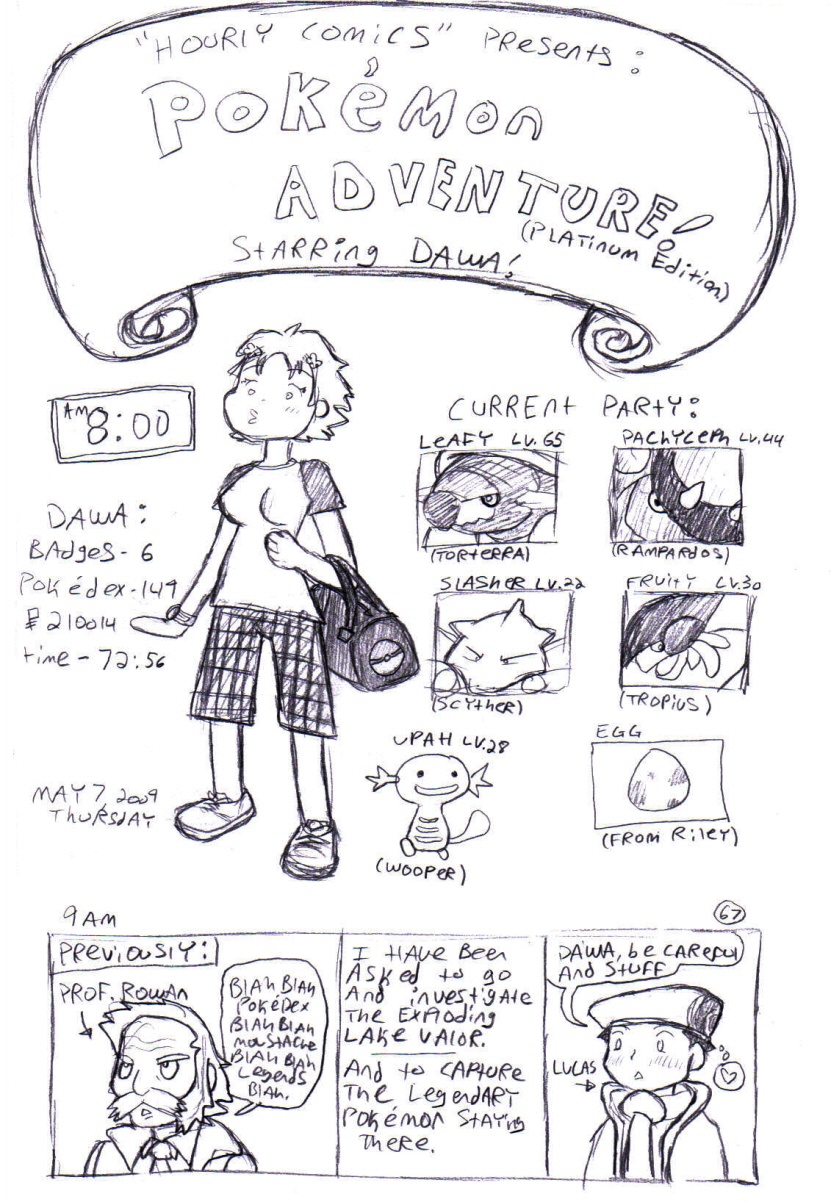 "HOURLY COMICS" Presents:
Pokémon
ADVENTURE!
(PLATinum Edition)
StARRing DAWA!
AM 8:00
DAWA:
BAdges - 6
Pokédex - 149
210014
time - 72:56
MAY 7, 2009
THURSdAY
CURREnt PARtY:
LeAFY LV.65
(TORTERRA)
PACHYCEPH LV.44
(RAMPARDOS)
SLASHER LV.22
(SCYtHER)
FRUITY LV.30
(TROPIUS)
UPAH LV.28
(WOOPER)
EGG
(FROM RILEY)
9 AM
67
PREVIOUSLY:
PROF. ROWAN
BlAH BlAH
PokéDEX
BlAH BlAH
moUStACHe
BlAH BlAH
Legends
BlAH.
I HAVE BEEN
ASKED to go
And investigAte
THE EXPLODING
LAKE VALOR.
And to CAPTURE
THE LegendARY
Pokémon StAYing
THERE.
DAWA, be CAREFUL
And StUFF
LUCAS